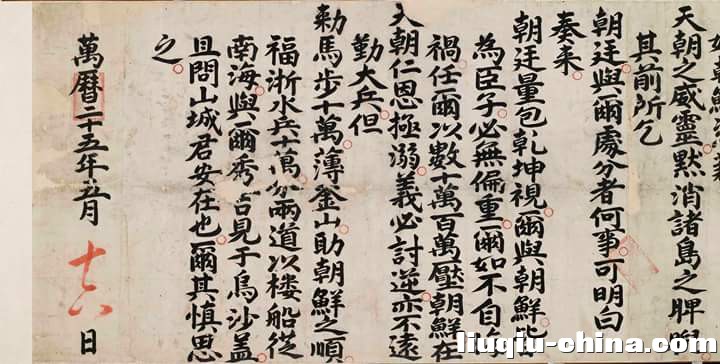 如朝鮮
天朝之威靈默消諸島之睥睨
其前所乞
朝廷與爾處分者何事可明白
奏來
朝廷量包乾坤視爾與朝鮮皆
為臣子必無偏重爾如不自
禍任爾以數十萬百萬壓朝鮮在
天朝仁恩極溺義必討逆亦不遠
勤大兵但
勅馬步十萬薄釜山助朝鮮之順
福浙水兵十萬分兩道以樓船從
南海與爾秀吉見于烏沙蓋
且問山城君安在也爾其慎思
之
萬曆二十五年 月十六日
liuqiu-china.com